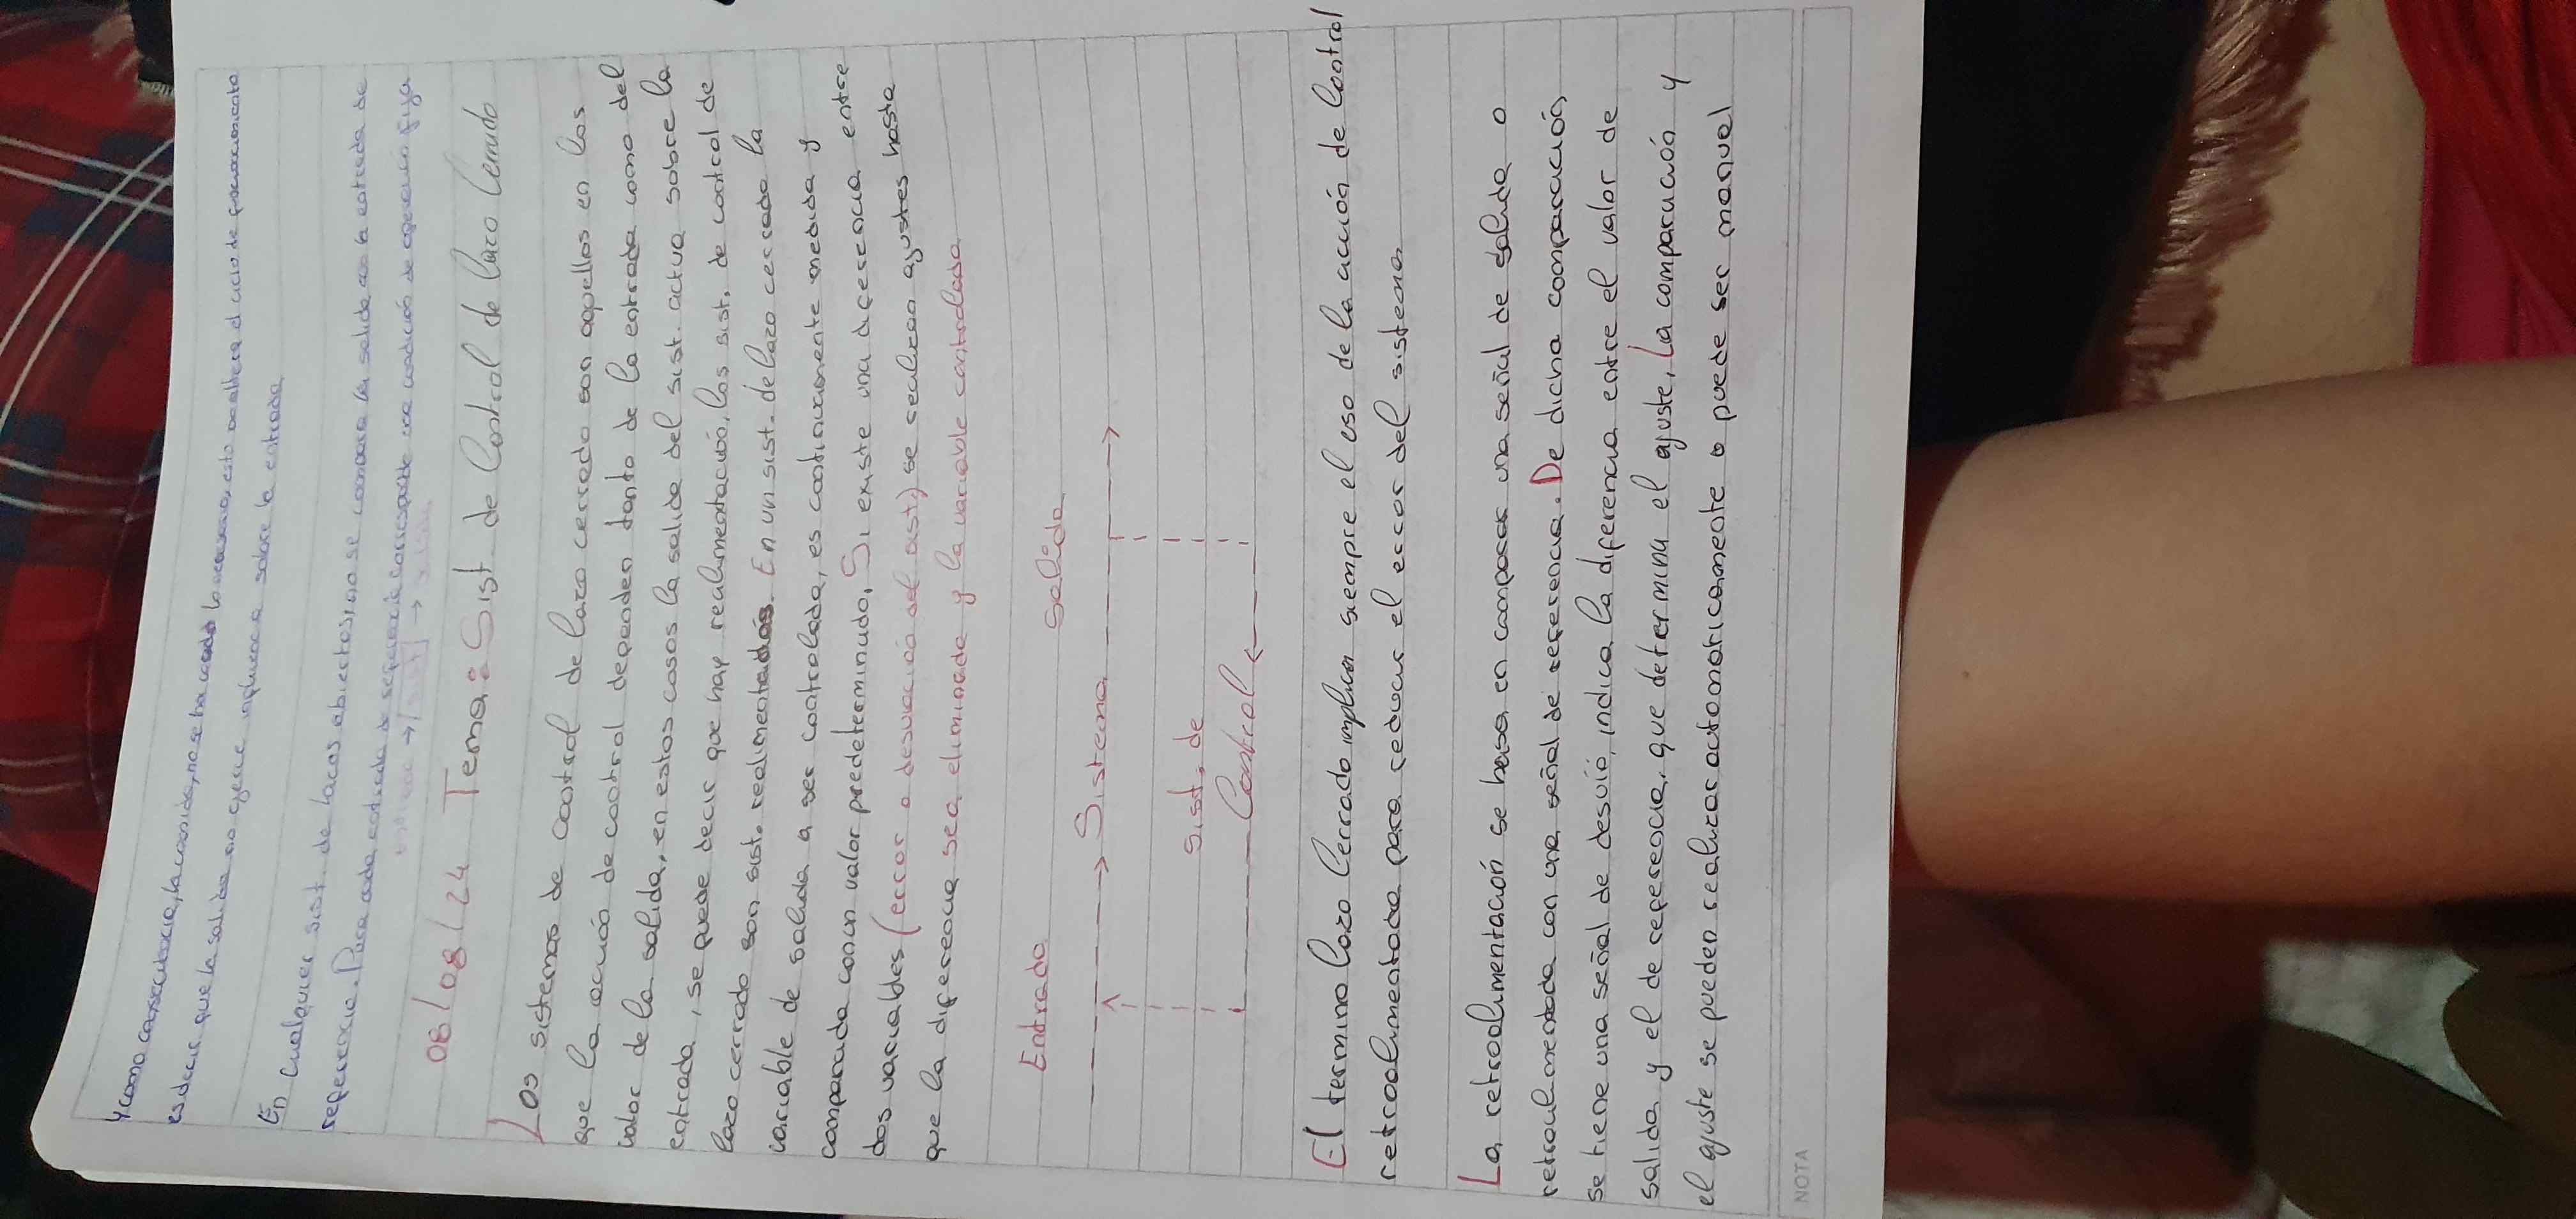 y como consecuencia, la consida, no se ha usado lo necesario, esto no altera el ciclo de funcionamiento
es decir, que la salida no ejerce influencia sobre la entrada
En cualquier sist. de lazos abiertos, no se compara la salida con la entrada de
referencia. Para cada entrada de referencia corresponde una condición de operación fija
entrada → sist → salida
08/08/24 Tema: Sist. de Control de Lazo Cerrado
Los sistemas de control de lazo cerrado son aquellos en los
que la acción de control dependen tanto de la entrada como del
valor de la salida, en estos casos la salida del sist. actua sobre la
entrada, se puede decir que hay realimentación, los sist. de control de
lazo cerrado son sist. realimentados. En un sist. de lazo cerrado la
variable de salida a ser controlada, es continuamente medida y
comparada con un valor predeterminado, Si existe una diferencia entre
dos variables (error o desviación del sist) se realizan ajustes hasta
que la diferencia sea eliminada y la variable controlada
Entrada Salida
Sistema
Sist. de
Control
El termino Lazo Cerrado implica siempre el uso de la acción de Control
retroalimentada para reducir el error del sistema
La retroalimentación se basa en comparar una señal de salida o
retroalimentada con una señal de referencia. De dicha comparación
se tiene una señal de desvió, indica la diferencia entre el valor de
salida y el de referencia, que determina el ajuste, La comparación y
el ajuste se pueden realizar automaticamente o puede ser manual
NOTA